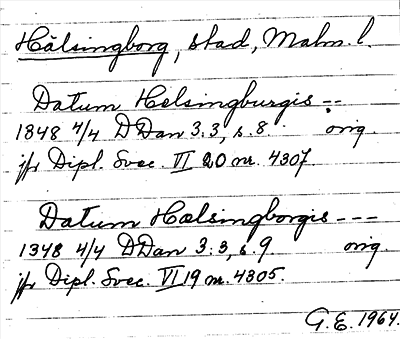 Hälsingborg, stad, Malm. l.
Datum Helsingburgis --
1348 4/4 DDan 3:3, s. 8. orig.
jfr Dipl. Svec. VI 20 nr. 4307.
Datum Hælsingborgis ---
1348 4/4 DDan 3:3, s. 9. orig.
jfr Dipl. Svec. VI 19 nr. 4305.
G.E. 1964.